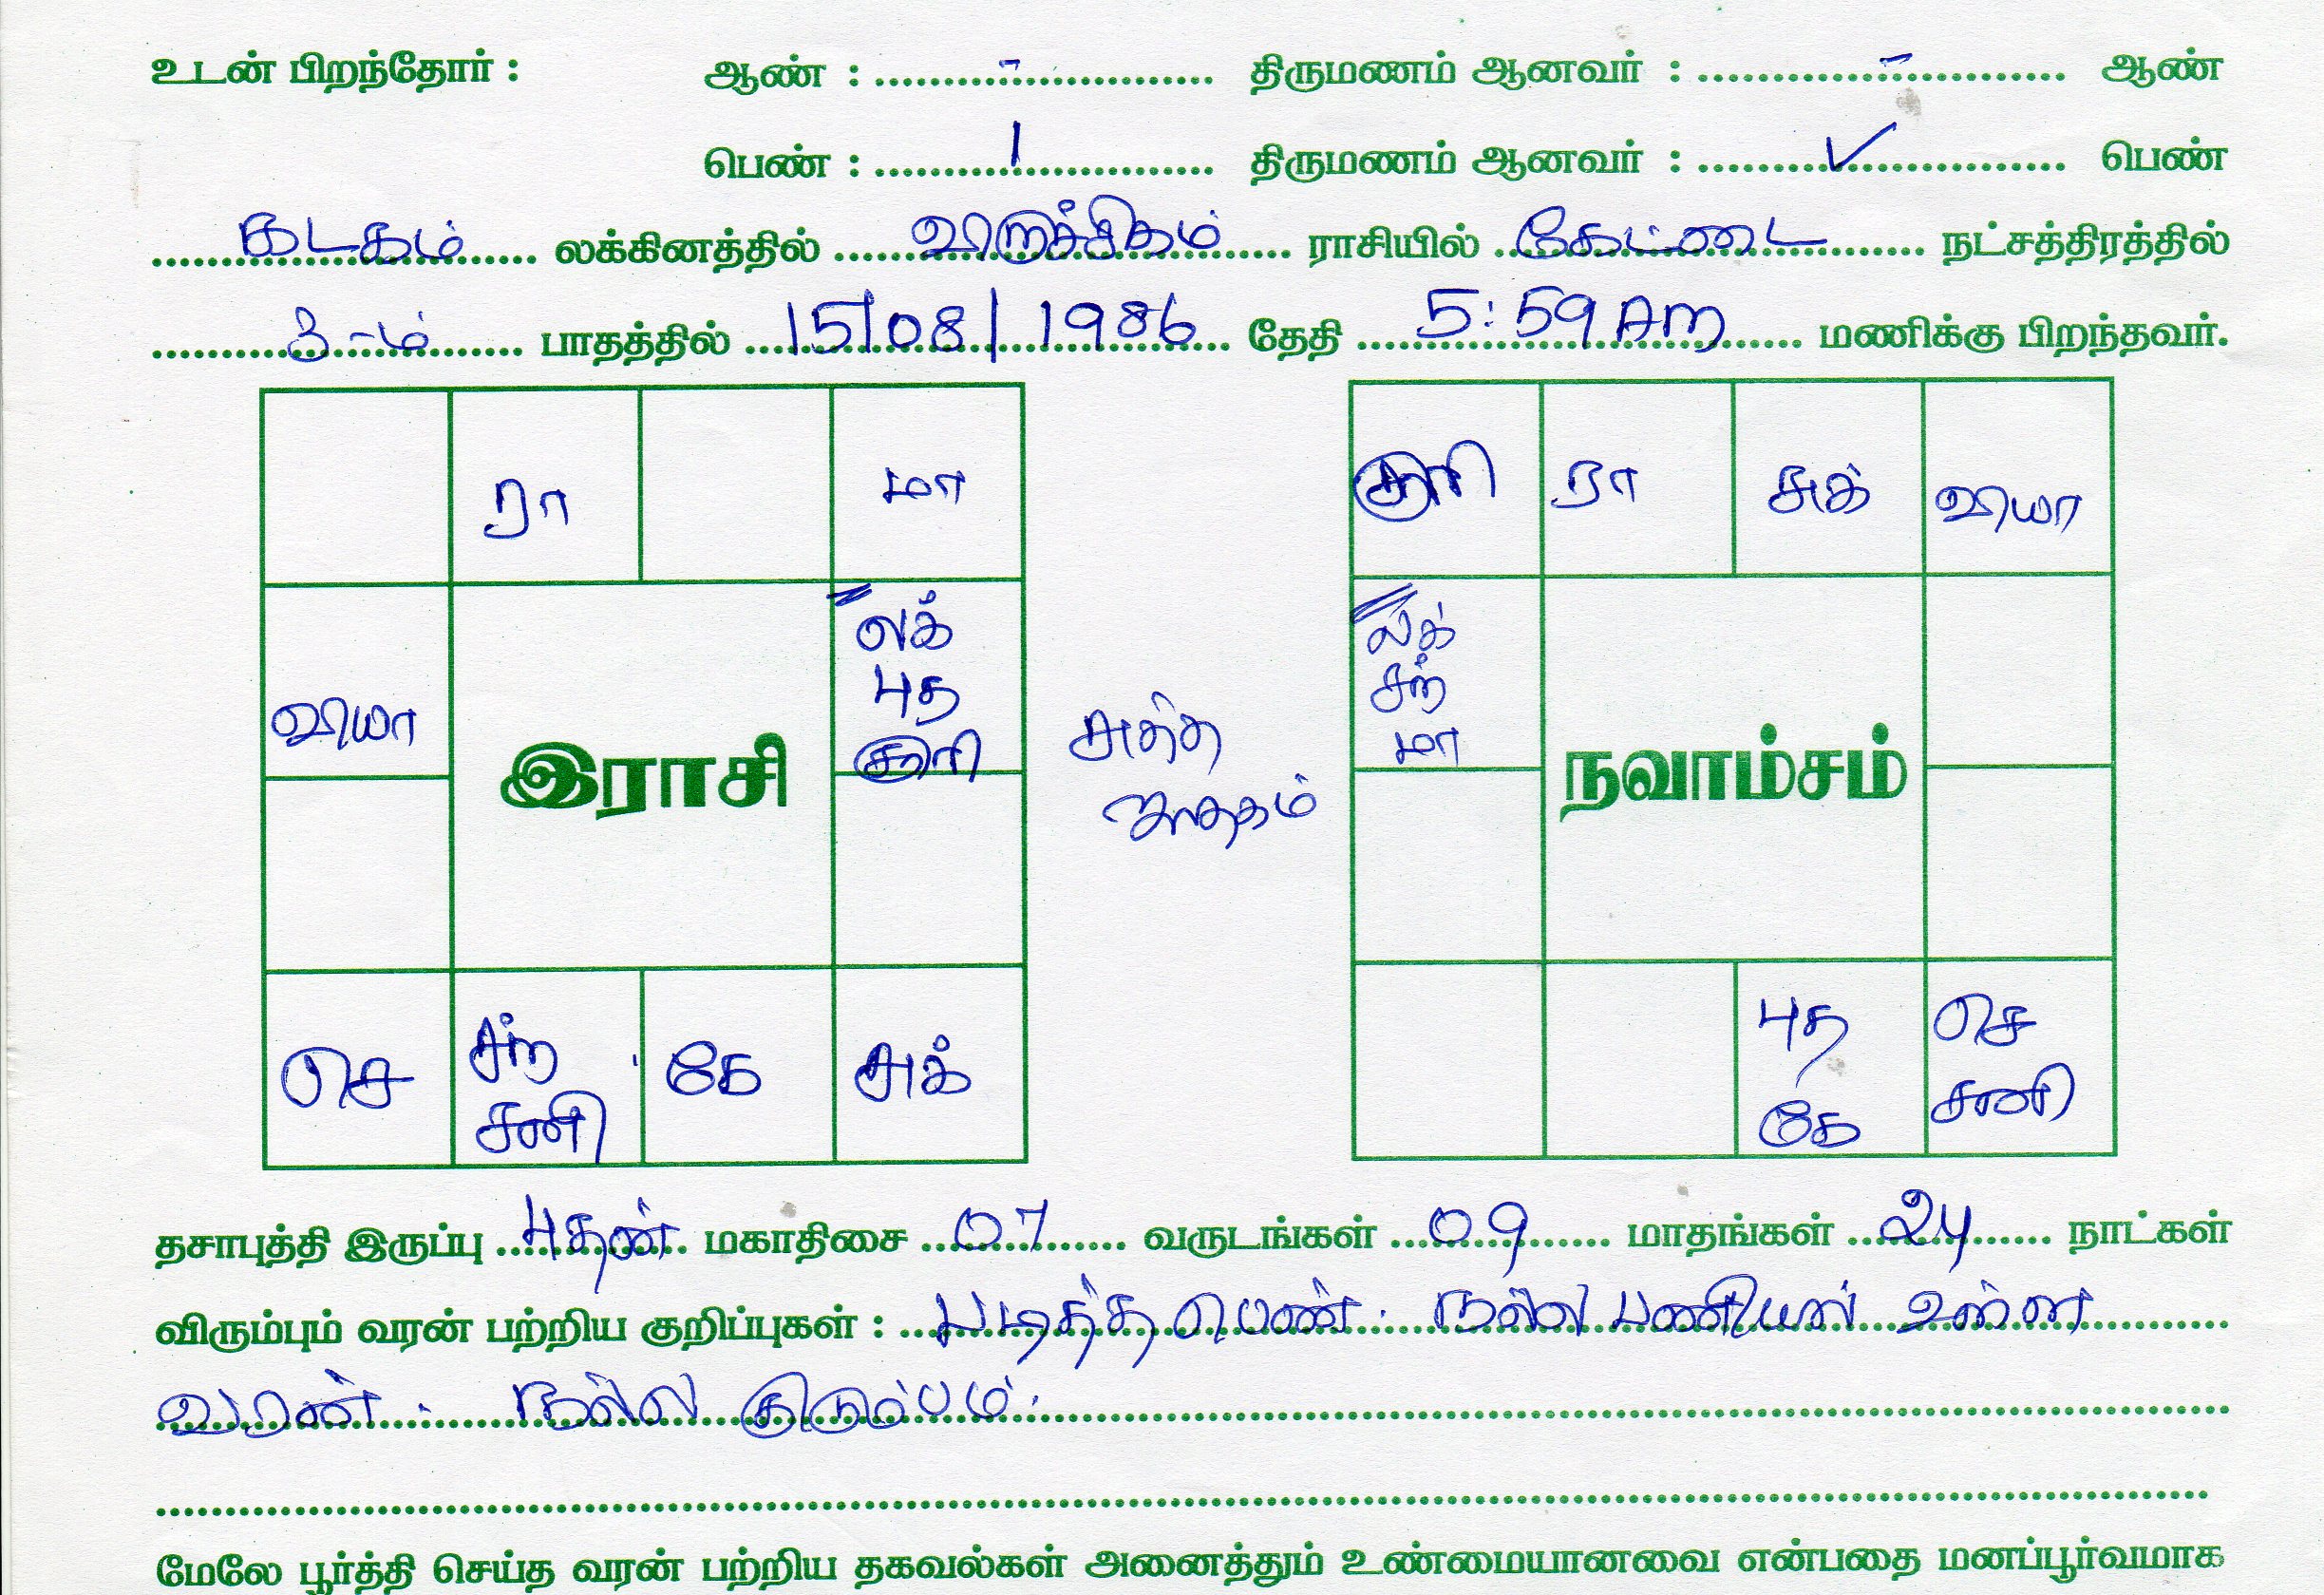 உடன் பிறந்தோர் : ஆண் : - திருமணம் ஆனவர் : - ஆண்
பெண் : 1 திருமணம் ஆனவர் : ✓ பெண்
கடகம் லக்கினத்தில் விருச்சிகம் ராசியில் கேட்டை நட்சத்திரத்தில்
3-ம் பாதத்தில் 15/08/1986 தேதி 5:59 Am மணிக்கு பிறந்தவர்.
ரா மா
லக்
புத
சூரி
வியா
இராசி
செ சந் கே சுக்
சனி
சுத்த
ஜாதகம்
சூரி ரா சுக் வியா
லக்
சந்
மா
நவாம்சம்
புத செ
கே சனி
தசாபுத்தி இருப்பு புதன் மகாதிசை 07 வருடங்கள் 09 மாதங்கள் 24 நாட்கள்
விரும்பும் வரன் பற்றிய குறிப்புகள் : படித்த பெண். நல்ல பணியில் உள்ள
வரன். நல்ல குடும்பம்.
மேலே பூர்த்தி செய்த வரன் பற்றிய தகவல்கள் அனைத்தும் உண்மையானவை என்பதை மனப்பூர்வமாக